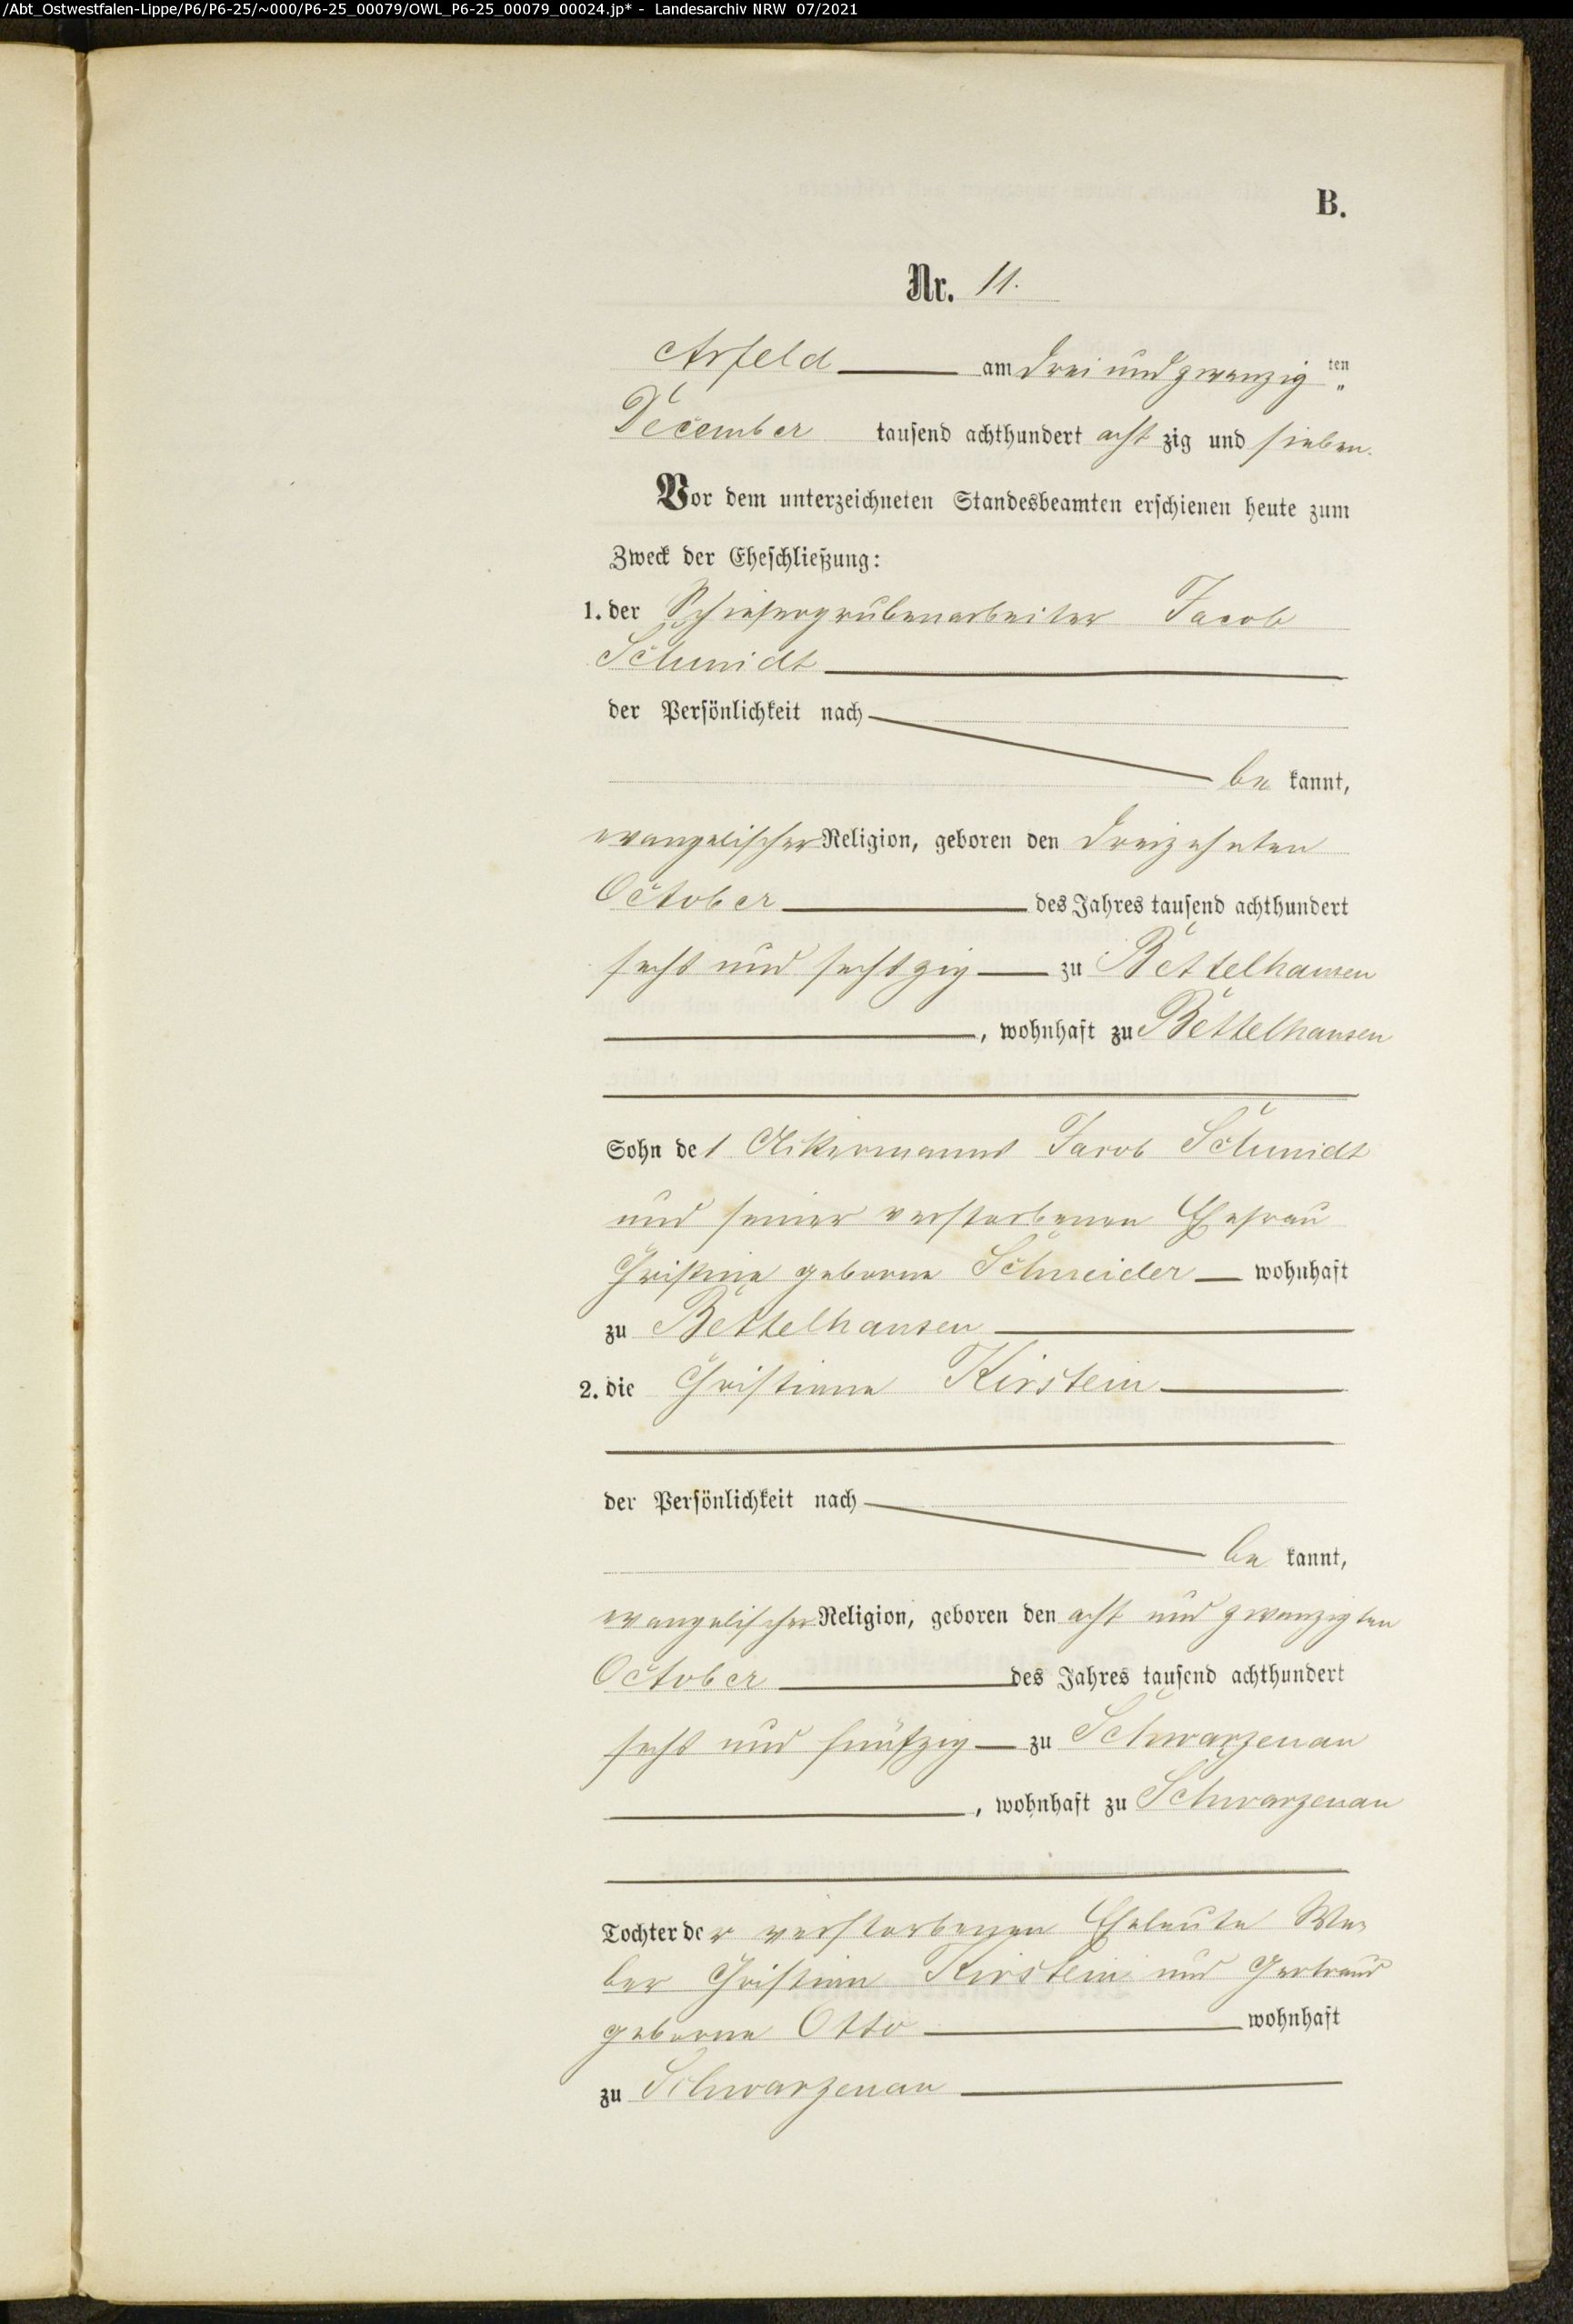 /Abt_Ostwestfalen-Lippe/P6/P6-25/~000/P6-25_00079/OWL_P6-25_00079_00024.jp* - Landesarchiv NRW 07/2021
B.
Nr. 11.
Arfeld am drei und zwanzig ten
December tausend achthundert acht zig und sieben.
Vor dem unterzeichneten Standesbeamten erschienen heute zum
Zweck der Eheschließung:
1. der Schiefergrubenarbeiter Jacob
Schmidt
der Persönlichkeit nach
be kannt,
evangelischer Religion, geboren den dreizehnten
October des Jahres tausend achthundert
sechs und sechszig zu Bettelhausen
, wohnhaft zu Bettelhausen
Sohn des Ackermanns Jacob Schmidt
und seiner verstorbenen Ehefrau
Christine geborne Schneider wohnhaft
zu Bettelhausen
2. die Christiane Kirstein
der Persönlichkeit nach
be kannt,
evangelischer Religion, geboren den acht und zwanzigten
October des Jahres tausend achthundert
sechs und fünfzig zu Schwarzenau
, wohnhaft zu Schwarzenau
Tochter der verstorbenen Eheleute We-
ber Christian Kirstein und Gertraud
geborne Otto wohnhaft
zu Schwarzenau